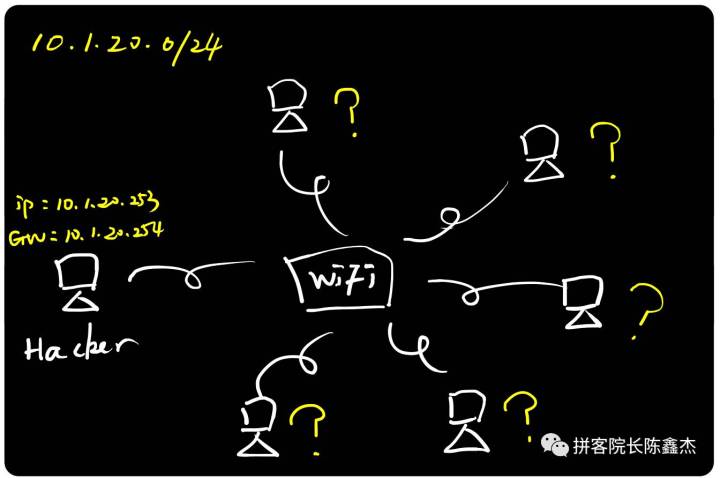 10.1.20.0/24
?
?
ip=10.1.20.253
GW=10.1.20.254
WiFi
?
Hacker
?
?
拼客院长陈鑫杰